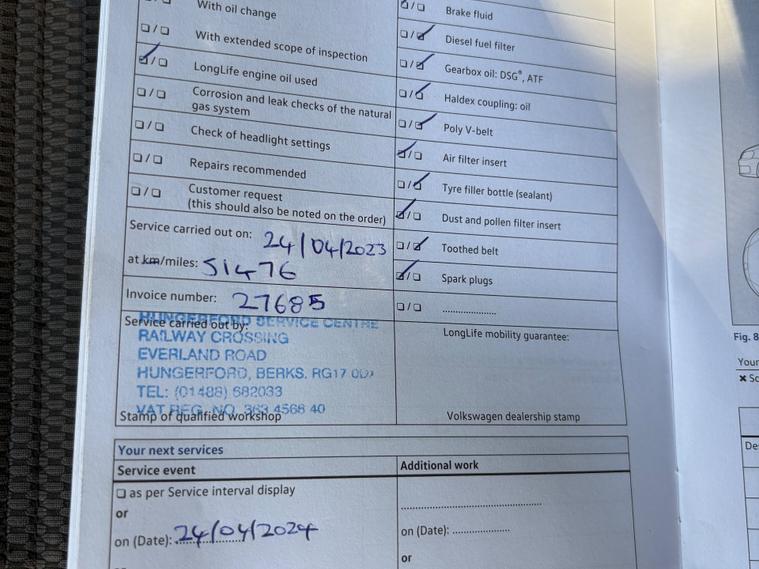 With oil change
With extended scope of inspection
LongLife engine oil used
Corrosion and leak checks of the natural
gas system
Check of headlight settings
Repairs recommended
Customer request
(this should also be noted on the order)
Service carried out on: 24/04/2023
at km/miles: 51476
Invoice number: 27685
Service carried out by:
HUNGERFORD SERVICE CENTRE
RAILWAY CROSSING
EVERLAND ROAD
HUNGERFORD, BERKS. RG17
TEL: (01488) 682033
VAT REG. NO. 363 4568 40
Stamp of qualified workshop
Brake fluid
Diesel fuel filter
Gearbox oil: DSG®, ATF
Haldex coupling: oil
Poly V-belt
Air filter insert
Tyre filler bottle (sealant)
Dust and pollen filter insert
Toothed belt
Spark plugs
LongLife mobility guarantee:
Volkswagen dealership stamp
Your next services
Service event
Additional work
as per Service interval display
or
on (Date): 24/04/2024
on (Date):
or
Fig. 8
Your